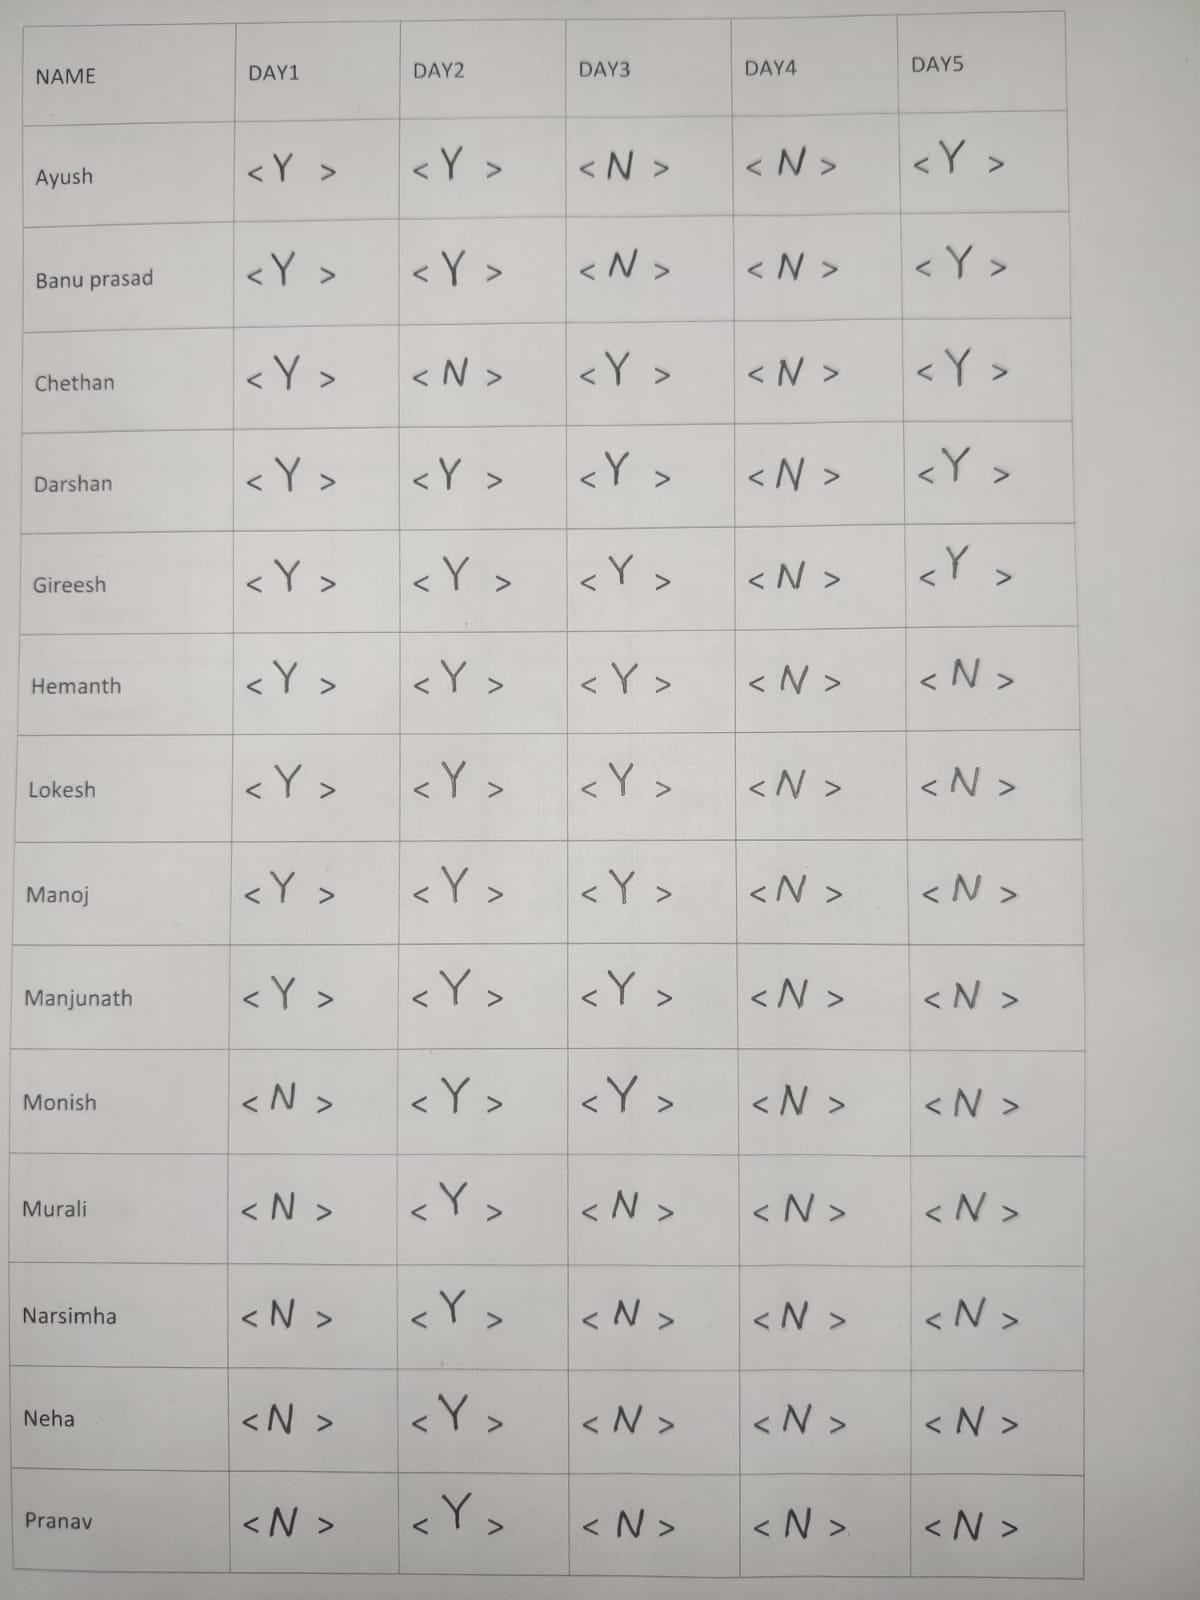 NAME DAY1 DAY2 DAY3 DAY4 DAY5
Ayush <Y > <Y > <N > <N > <Y >
Banu prasad <Y > <Y > <N > <N > <Y >
Chethan <Y > <N > <Y > <N > <Y >
Darshan <Y > <Y > <Y > <N > <Y >
Gireesh <Y > <Y > <Y > <N > <Y >
Hemanth <Y > <Y > <Y > <N > <N >
Lokesh <Y > <Y > <Y > <N > <N >
Manoj <Y > <Y > <Y > <N > <N >
Manjunath <Y > <Y > <Y > <N > <N >
Monish <N > <Y > <Y > <N > <N >
Murali <N > <Y > <N > <N > <N >
Narsimha <N > <Y > <N > <N > <N >
Neha <N > <Y > <N > <N > <N >
Pranav <N > <Y > <N > <N > <N >